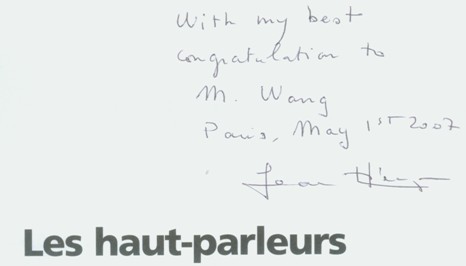 With my best
congratulation to
M. Wang
Paris, May 1ST 2007
Jean
Les haut-parleurs